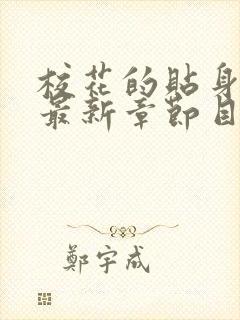 校花的貼身
最新章節目
鄭宇成